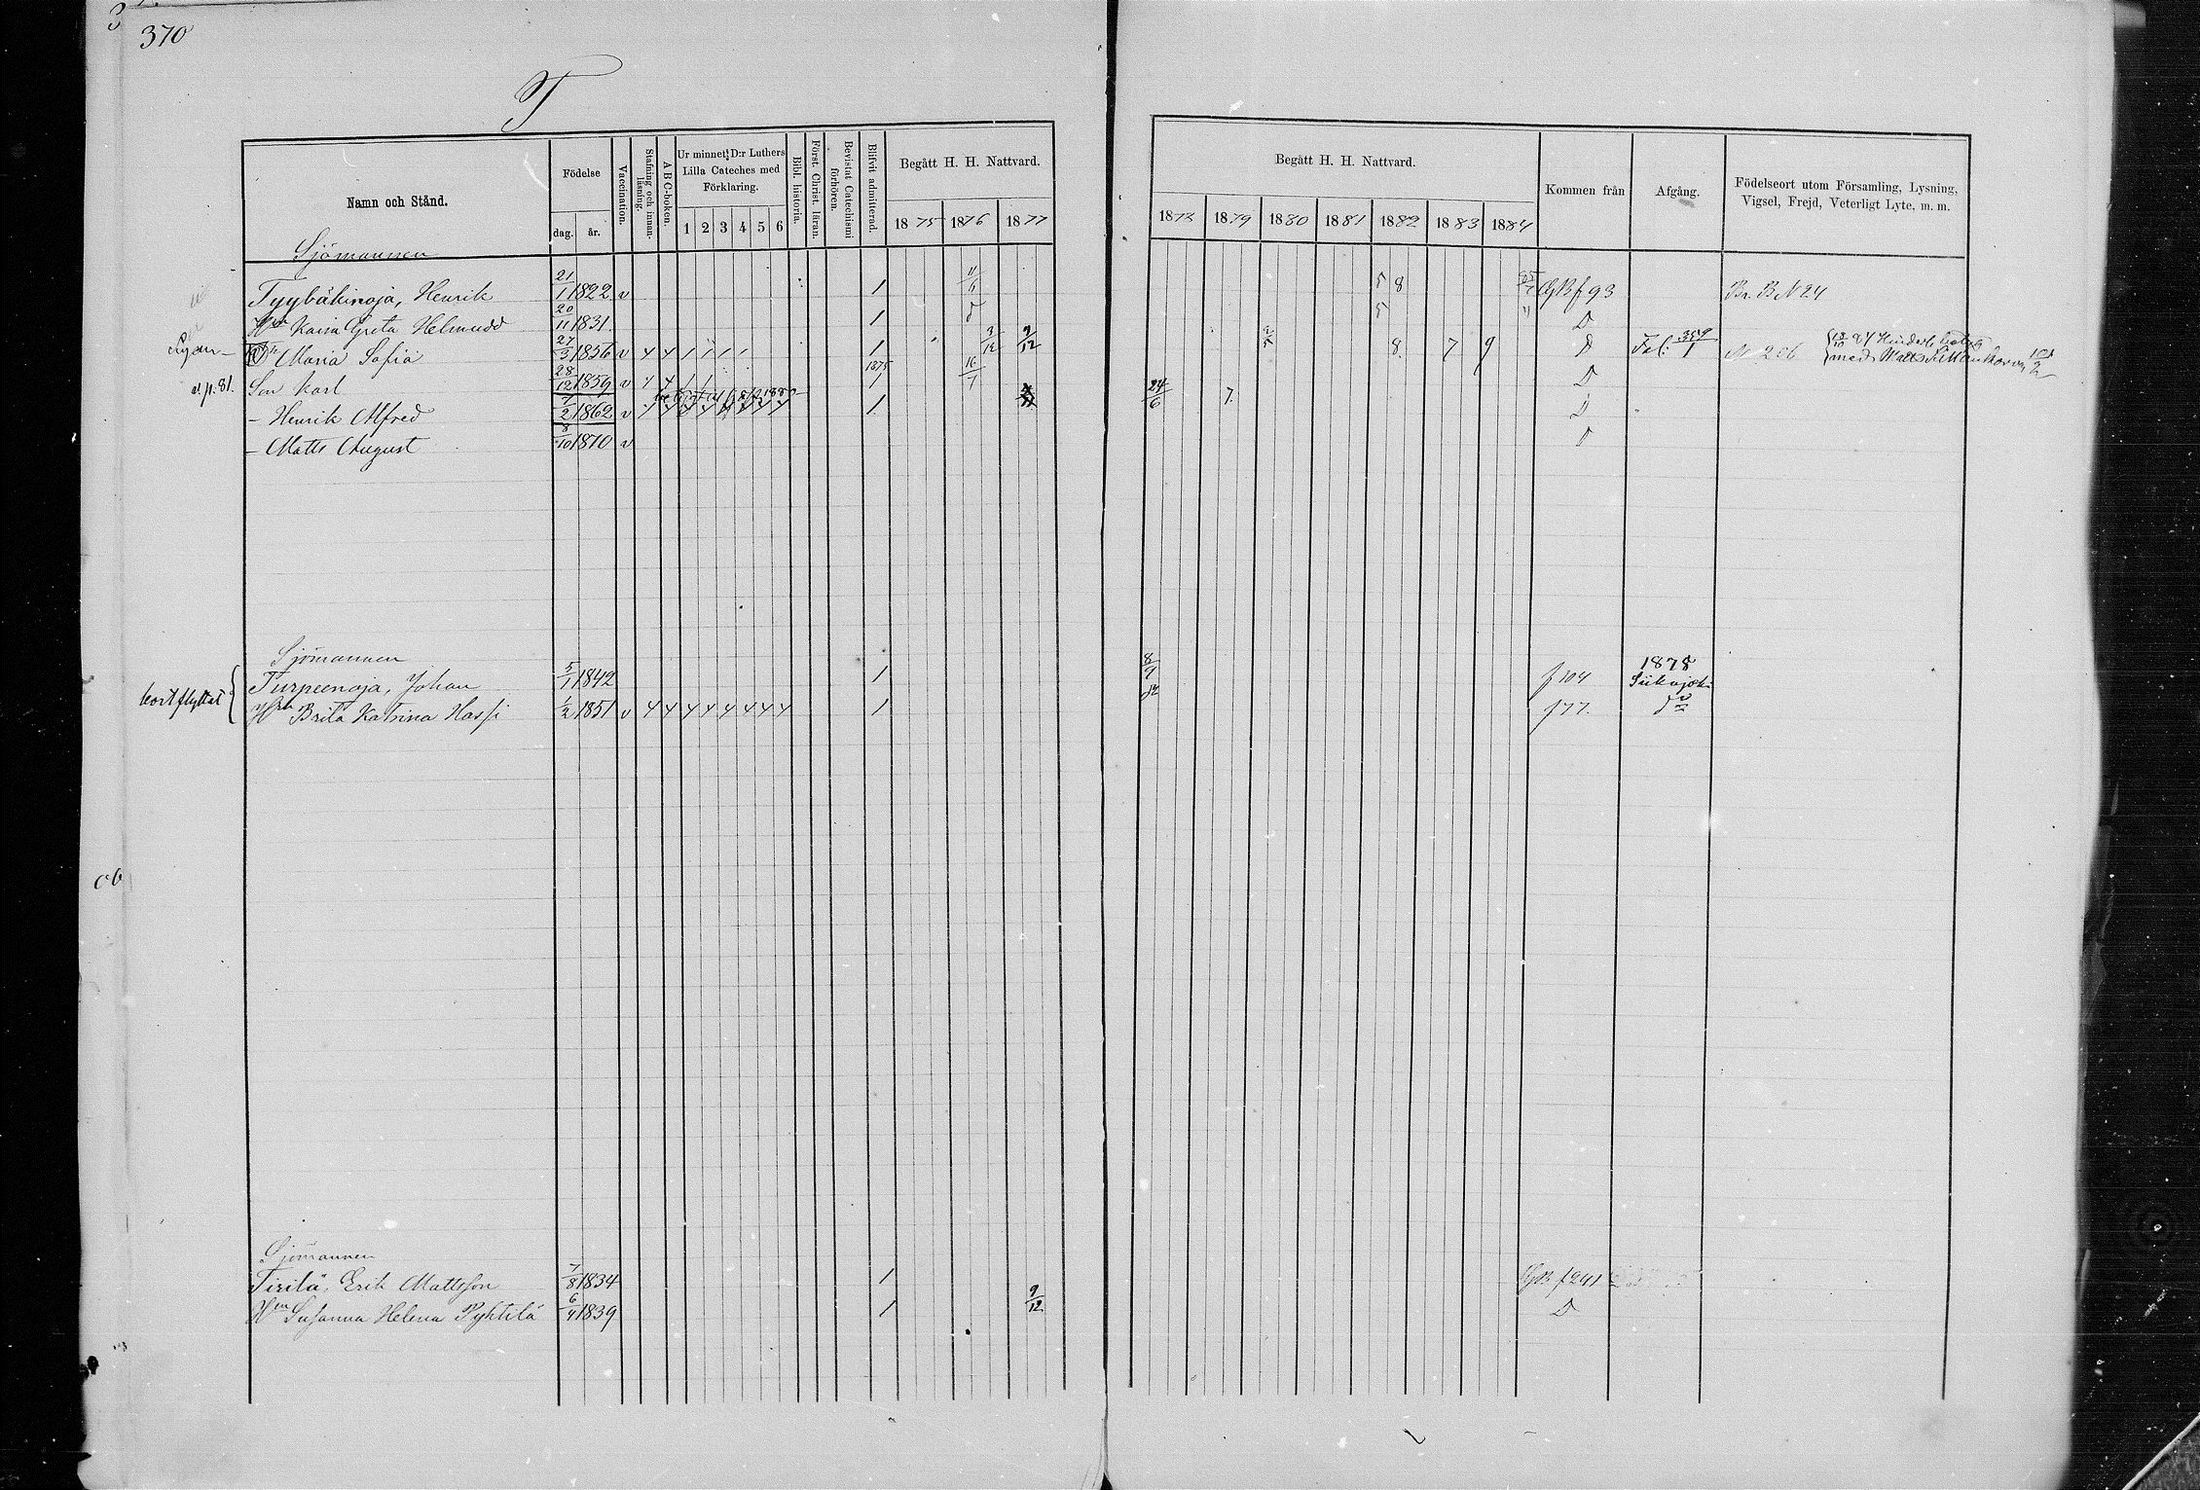 370
T
Namn och Stånd.
Födelse
dag. år.
Vaccination.
Stafning och innanläsning.
ABC-boken.
Ur minnet: D:r Luthers Lilla Cateches med Förklaring.
1 2 3 4 5 6
Bibl. historia.
Först. Christ. läran.
Bevistat Catechismi förhören.
Blifvit admitterad.
Begått H. H. Nattvard.
1875 1876 1877
Begått H. H. Nattvard.
1879 1880 1881 1882 1883 1884
Kommen från
Afgång.
Födelseort utom Församling, Lysning, Vigsel, Frejd, Veterligt Lyte, m. m.
Sjömannen
Tyybäkinoja, Henrik 21/1 1822 v 1 11/6 5 8 GB f 93 Br. B N 24
Hn Kaisa Greta Helmudd 20/11 1831 1 5 D
Maria Sofia 27/3 1856 v 4 4 1 1 1 1 1 3/12 9/12 8 7 9 D N 206
a. p. 81. Son Karl 28/12 1859 v 4 4 1 1 1875 1 16/7 D
- Henrik Alfred 7/2 1862 v 1 24/6 7. D
- Matts August 8/10 1870 v D
Sjömannen
bortflyttat
Turpeenoja, Johan 5/1 1842 1 8/9 f 104 1878 Siikajoki
Hn Brita Katrina Hassi 1/2 1851 v 4 4 4 4 4 4 4 4 1 f 77.
Sjömannen
Tirilä, Erik Mattsson 7/8 1834 1 GB f 241
Hn Susanna Helena Pyhtilä 6/4 1839 1 9/12 D